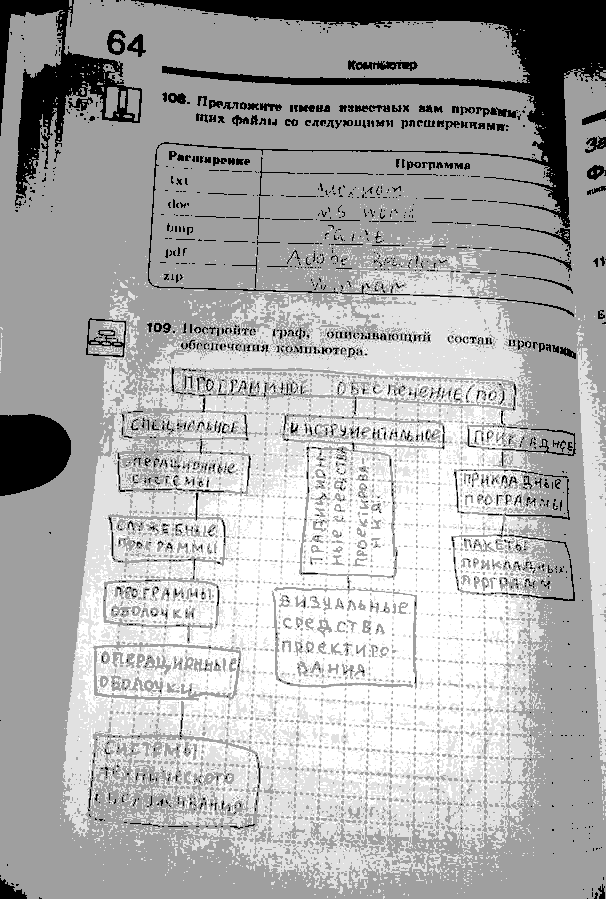 64
Компьютер
108. Предложите имена известных вам программ,
щих файлы со следующими расширениями:
Расширение Программа
txt
doc MS Word
bmp Paint
pdf Adobe Reader
zip Winrar
109. Постройте граф, описывающий состав программн
обеспечения компьютера.
ПРОГРАММНОЕ ОБЕСПЕЧЕНИЕ (ПО)
СПЕЦИАЛЬНОЕ
ИНСТРУМЕНТАЛЬНОЕ
ПРИКЛАДНОЕ
ОПЕРАЦИОННЫЕ
СИСТЕМЫ
СЛУЖЕБНЫЕ
ПРОГРАММЫ
ПРОГРАММЫ
ОБОЛОЧКИ
ОПЕРАЦИОННЫЕ
ОБОЛОЧКИ
СИСТЕМЫ
ТЕХНИЧЕСКОГО
ОБСЛУЖИВАНИЯ
ТРАДИЦИОН-
НЫЕ СРЕДСТВА
ПРОЕКТИРОВА-
НИЯ
ВИЗУАЛЬНЫЕ
СРЕДСТВА
ПРОЕКТИРО-
ВАНИЯ
ПРИКЛАДНЫЕ
ПРОГРАММЫ
ПАКЕТЫ
ПРИКЛАДНЫХ
ПРОГРАММ
За
11